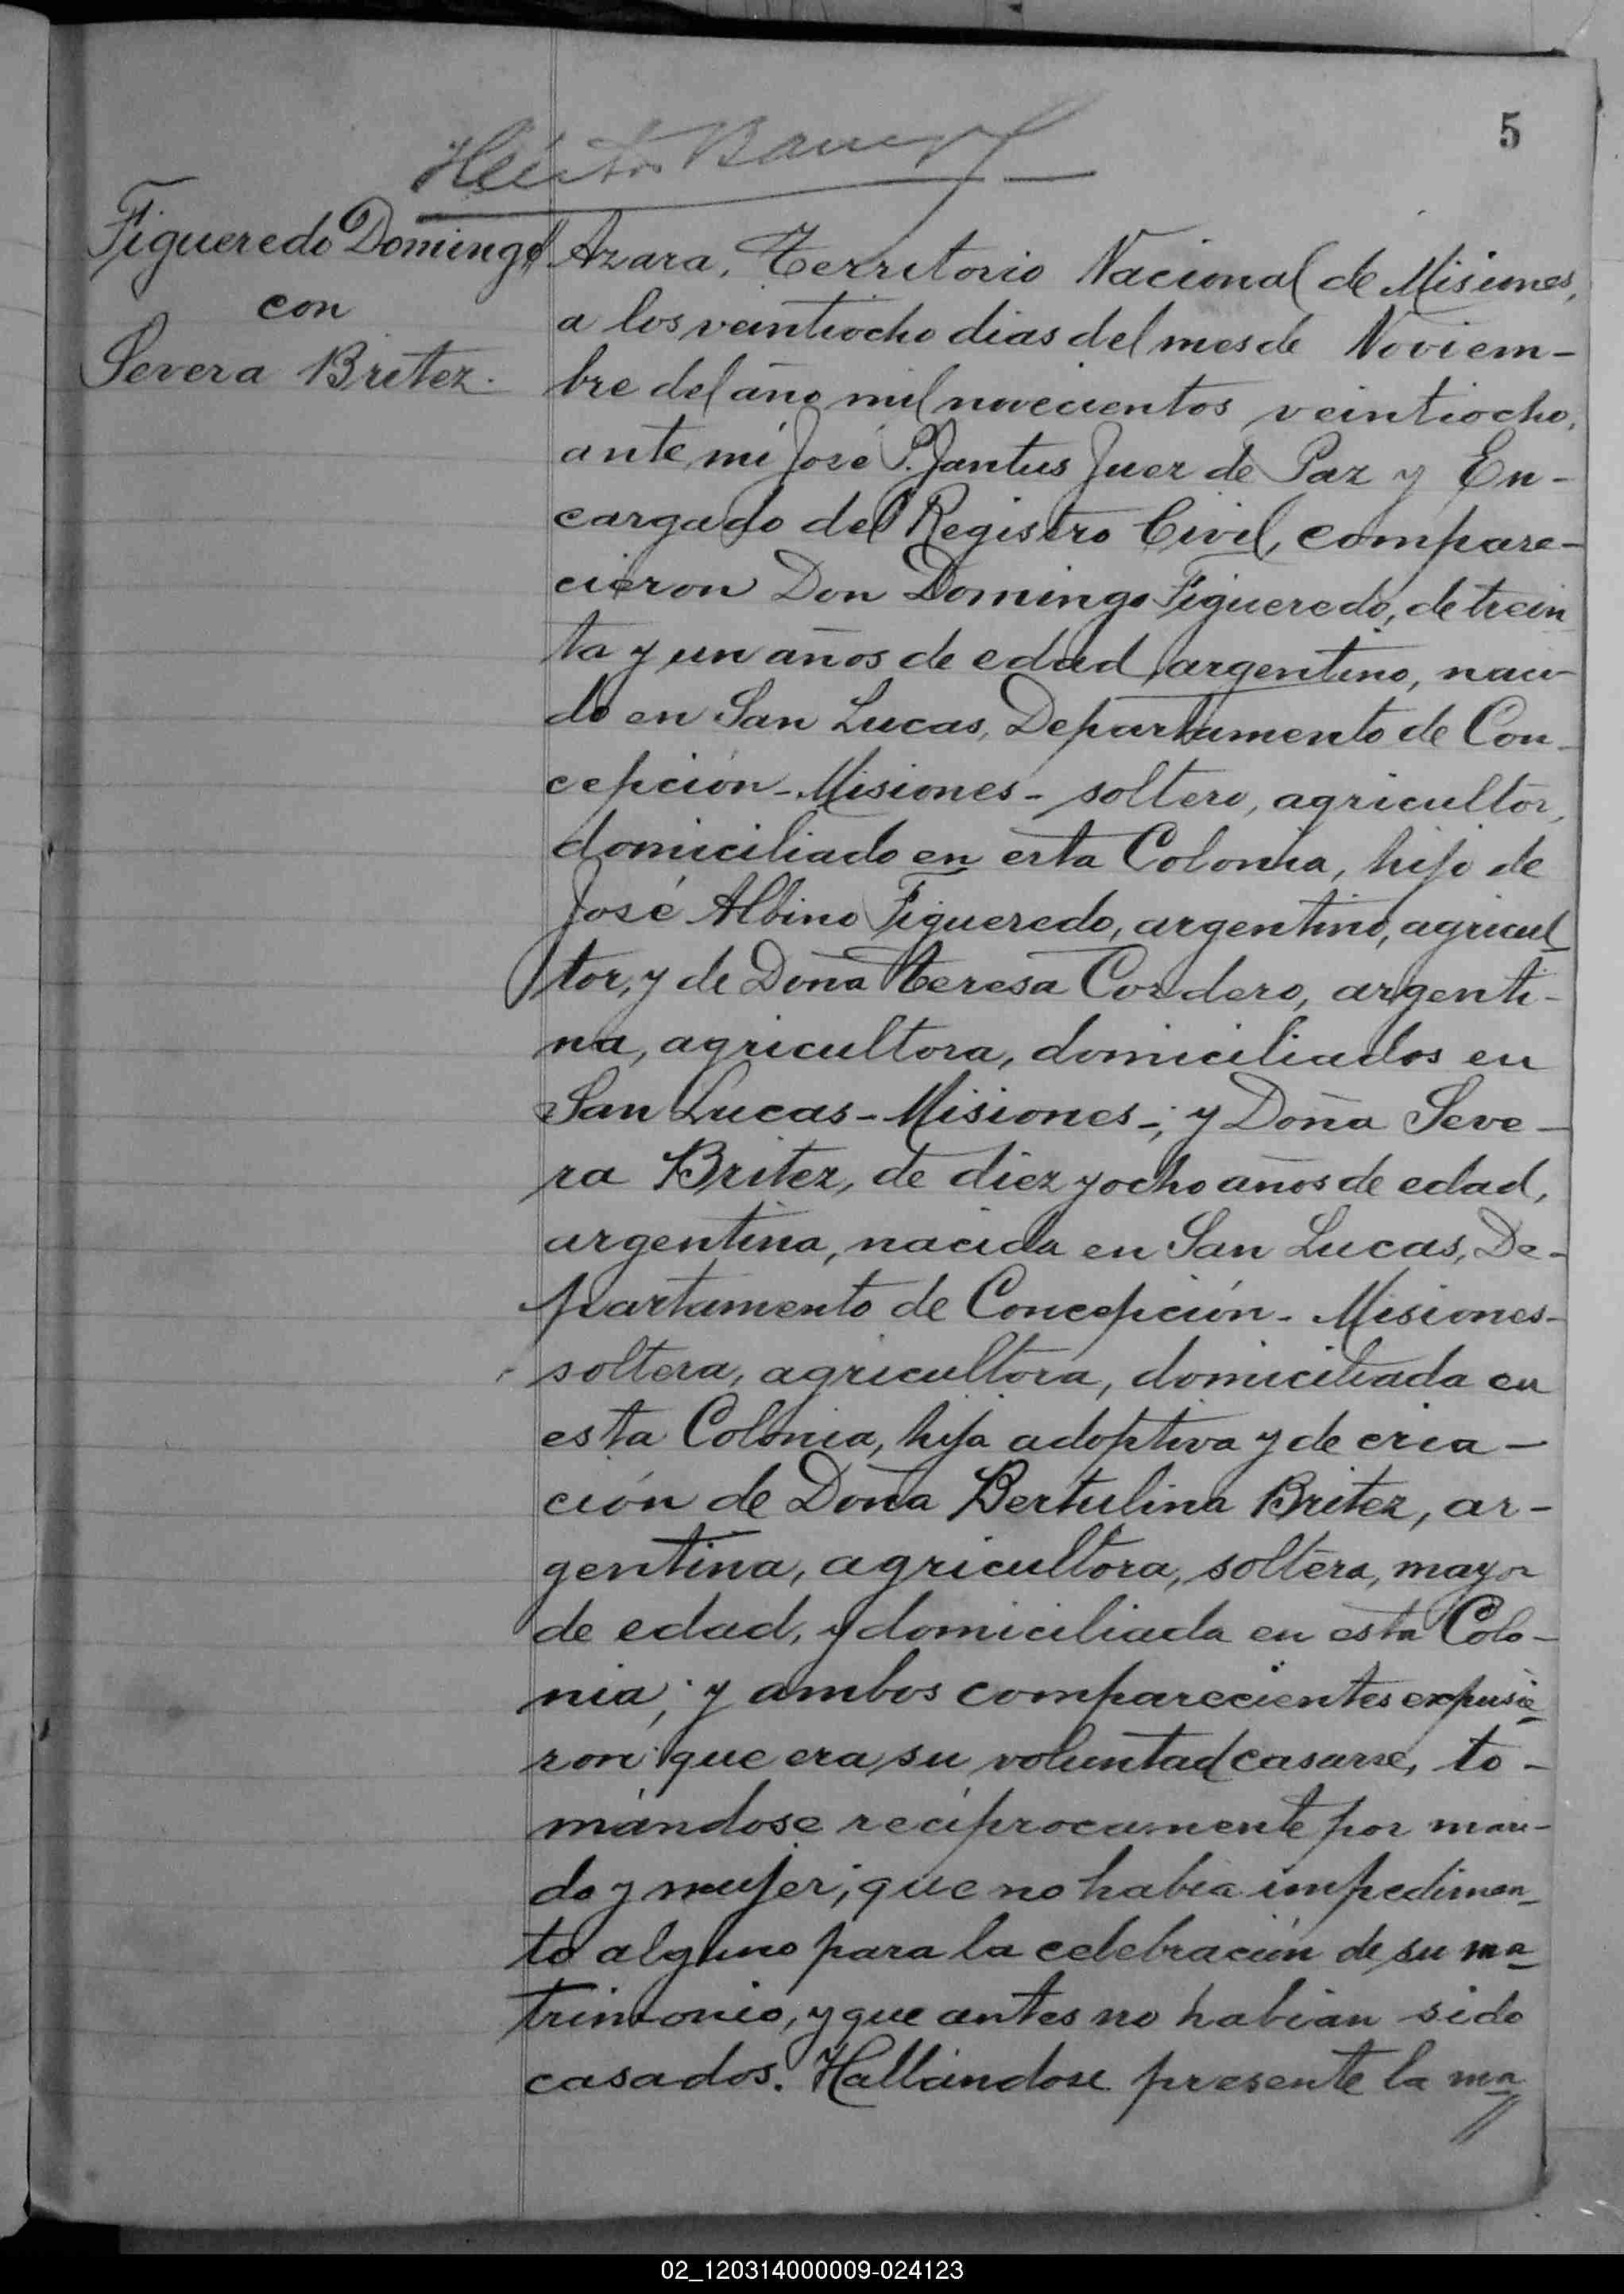 5
Figueredo Domingo
con
Severa Britez.
Azara, Territorio Nacional de Misiones,
a los veintiocho dias del mes de Noviem-
bre del año mil novecientos veintiocho,
ante mí José P. Jantus Juez de Paz y En-
cargado del Registro Civil, compare-
cieron Don Domingo Figueredo, de trein
ta y un años de edad, argentino, naci-
do en San Lucas, Departamento de Con-
cepción-Misiones- soltero, agricultor,
domiciliado en esta Colonia, hijo de
José Albino Figueredo, argentino, agricul
tor, y de Doña Teresa Cordero, argenti-
na, agricultora, domiciliados en
San Lucas-Misiones-; y Doña Seve-
ra Britez, de diez y ocho años de edad,
argentina, nacida en San Lucas, De-
partamento de Concepción-Misiones-
soltera, agricultora, domiciliada en
esta Colonia, hija adoptiva y de cria-
ción de Doña Bertulina Britez, ar-
gentina, agricultora, soltera, mayor
de edad, y domiciliada en esta Colo-
nia; y ambos comparecientes expusie-
ron: que era su voluntad casarse, to-
mándose recíprocamente por mari-
do y mujer; que no había impedimen-
to alguno para la celebración de su ma-
trimonio, y que antes no habían sido
casados. Hallándose presente la ma
02_120314000009-024123